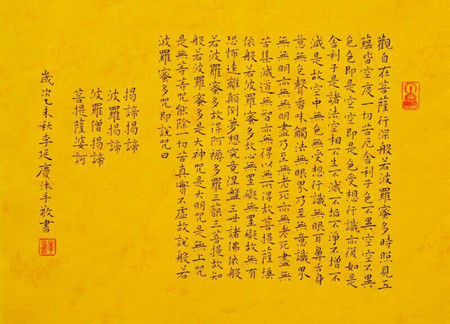 觀自在菩薩行深般若波羅蜜多時照見五
蘊皆空度一切苦厄舍利子色不異空空不異
色色即是空空即是色受想行識亦復如是
舍利子是諸法空相不生不滅不垢不淨不增不
減是故空中無色無受想行識無眼耳鼻舌身
意無色聲香味觸法無眼界乃至無意識界
無無明亦無無明盡乃至無老死亦無老死盡無
苦集滅道無智亦無得以無所得故菩提薩埵
依般若波羅蜜多故心無罣礙無罣礙故無有
恐怖遠離顛倒夢想究竟涅槃三世諸佛依般
若波羅蜜多故得阿耨多羅三藐三菩提故知
般若波羅蜜多是大神咒是大明咒是無上咒
是無等等咒能除一切苦真實不虛故說般若
波羅蜜多咒即說咒曰
揭諦揭諦
波羅揭諦
波羅僧揭諦
菩提薩婆訶
歲次乙未秋李慶沐手敬書